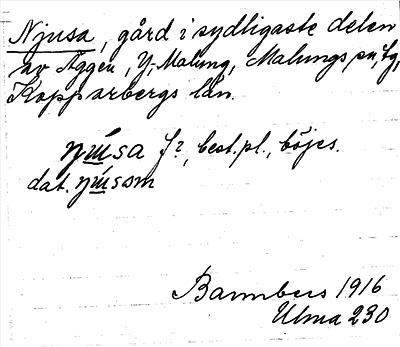 Njusa, gård i sydligaste delen
av Äggen, Y. Malung, Malungs sn, tg,
Kopparbergs län.
f?, best. pl., böjes.
dat.
Bannbers 1916
Ulma 230